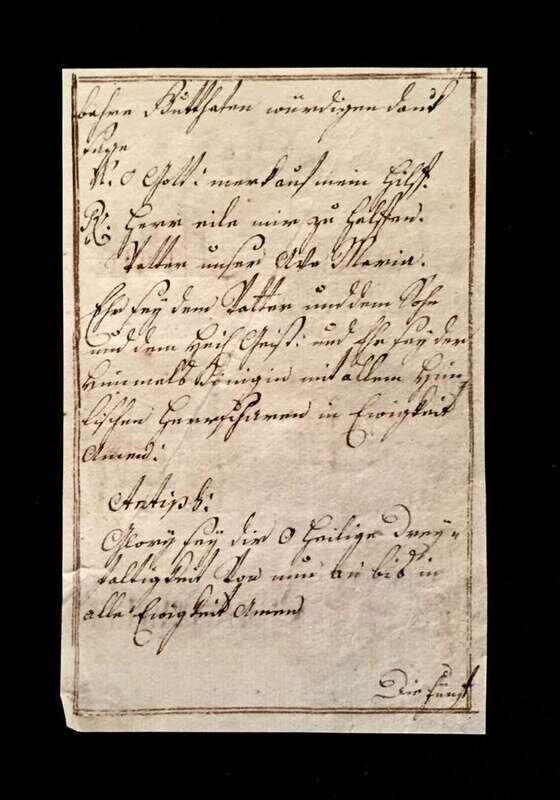 bahre Gutthaten würdigen danck
sage
V. O Gott: merk auf mein Hilff.
R: Herr eile mir zu helffen.
Vatter unser Ave Maria.
Ehr seÿ dem Vatter und dem Sohn
und dem Heil Geist: und Ehr seÿ der
Himmels Königin mit allem Him¬
lischen Herrscharen in Ewigkeit
Amen:
Antiph:
Glorÿ seÿ dir O Heilige Dreÿ¬
faltigkeit Von nun an bis in
alle Ewigkeit Amen
Die fünft